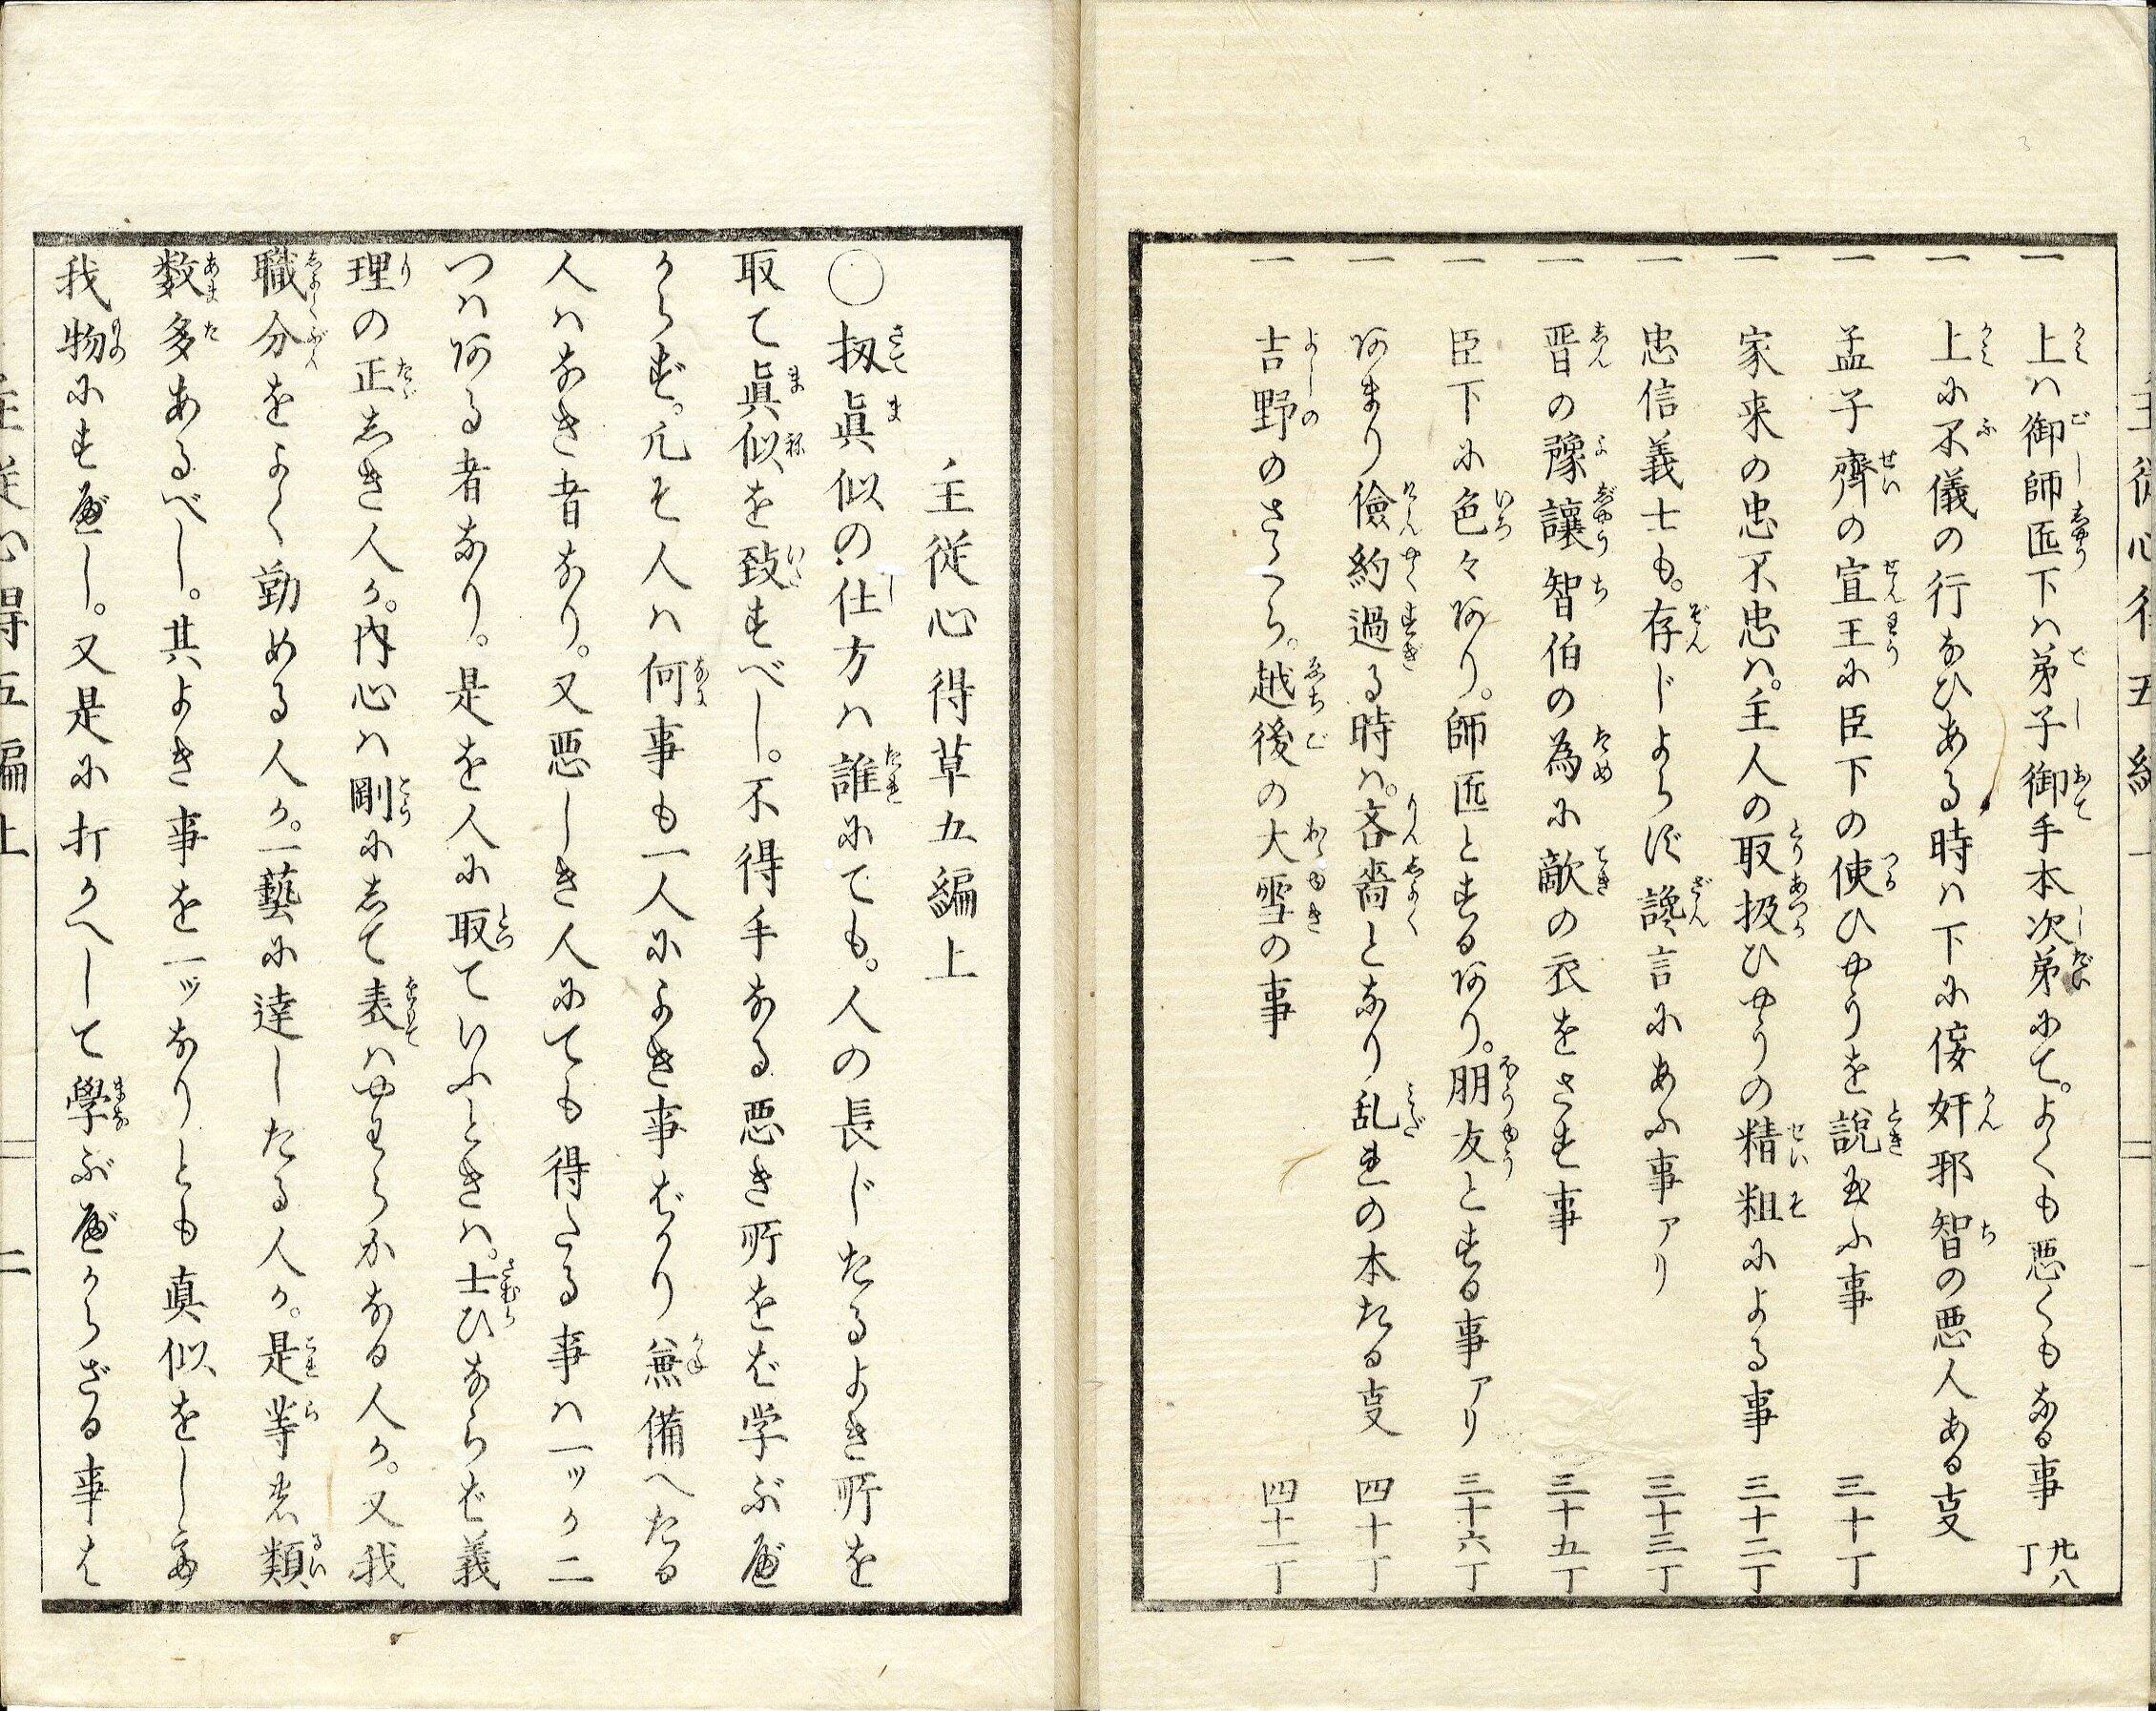 一 上ハ御師匠下ハ弟子御手本次第にて。よくも悪くもなる事 廿八丁
一 上に不儀の行なひある時ハ下に佞奸邪智の悪人ある叓
一 孟子齊の宣王に臣下の使ひやうを説玉ふ事 三十丁
一 家来の忠不忠ハ。主人の取扱ひやうの精粗による事 三十二丁
一 忠信義士も。存じよらず讒言にあふ事アリ 三十三丁
一 晋の豫讓智伯の為に敵の衣をさす事 三十五丁
一 臣下に色々あり。師匠とするあり。朋友とする事アリ 三十六丁
一 あまり儉約過る時ハ。吝嗇となり乱れの本たる叓 四十丁
一 吉野のさくら。越後の大雪の事 四十一丁
主従心得草五編上
〇扨眞似の仕方ハ誰にても。人の長じたるよき所を
取て眞似を致すべし。不得手なる悪き所をば学ぶべ
からず。凡そ人ハ何事も一人によき事ばかり兼備へたる
人ハなき者なり。又悪しき人にても得たる事ハ一ッか二
つハある者なり。是を人に取ていふときハ。士ひならば義
理の正しき人か。内心ハ剛にして表ハやわらかなる人か。又我
職分をよく勤める人か。一藝に達したる人か。是等の類
数多あるべし。其よき事を一ッなりとも真似をして
我物にすべし。又是に打かへして學ぶべからざる事は
主従心得五編上 二